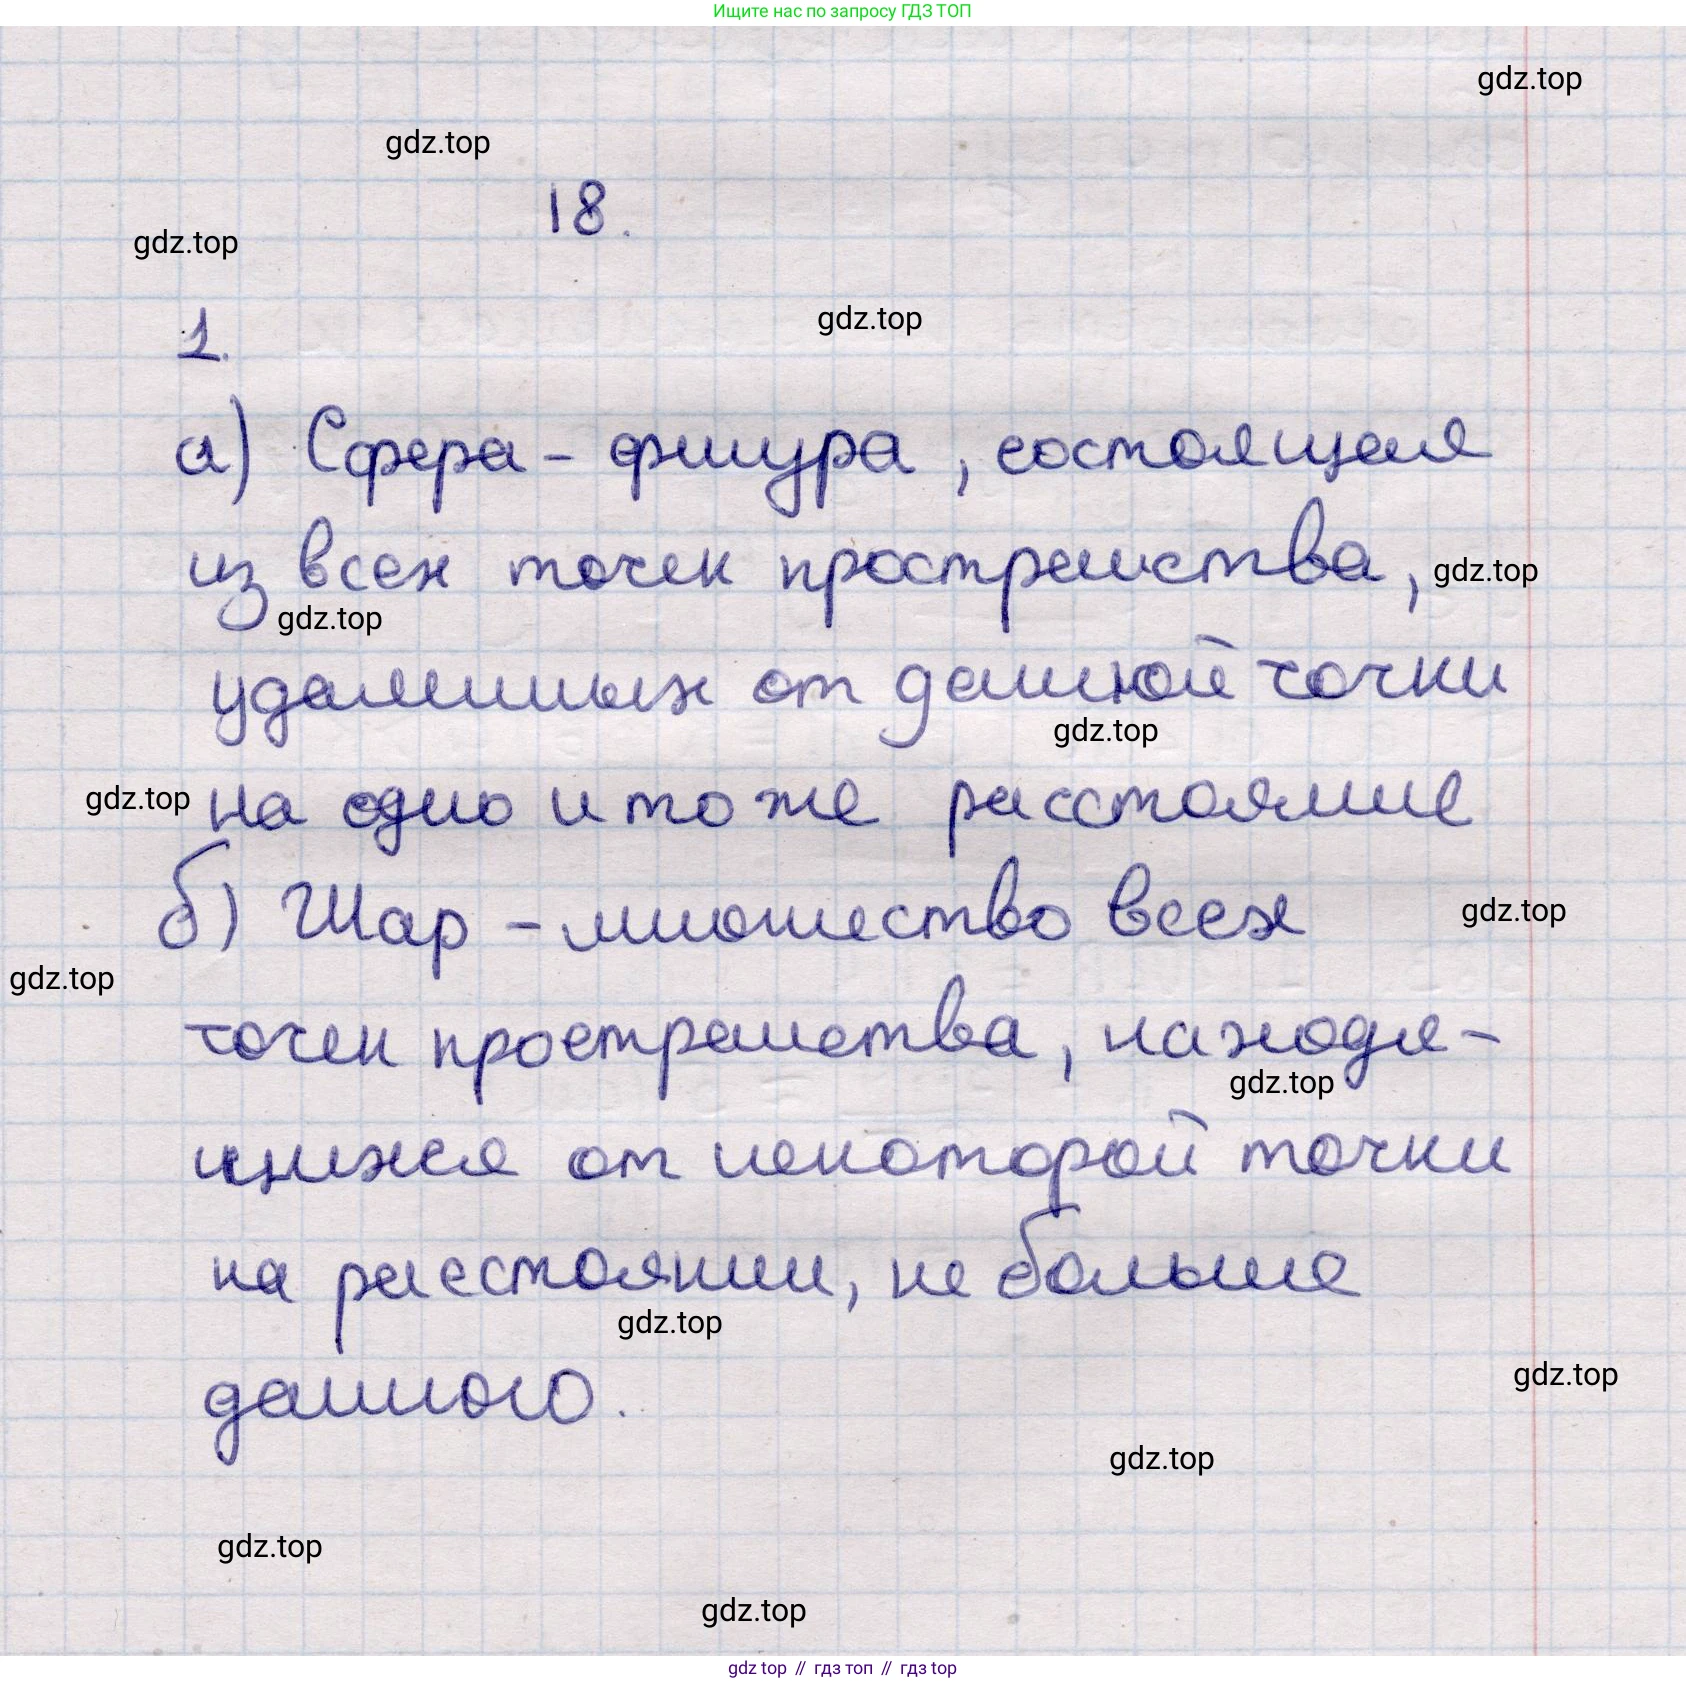 Ищите нас по запросу ГДЗ ТОП
gdz.top
gdz.top
18.
gdz.top
gdz.top
1.
а) Сфера - фигура, состоящая
из всех точек пространства,
gdz.top
gdz.top
удаленных от данной точки
gdz.top
gdz.top
на одно и то же расстояние
б) Шар - множество всех
gdz.top
gdz.top
точек пространства, находя-
gdz.top
щихся от некоторой точки
на расстоянии, не больше
gdz.top
gdz.top
данного.
gdz.top
gdz.top
gdz.top
gdz top // гдз топ // гдз top